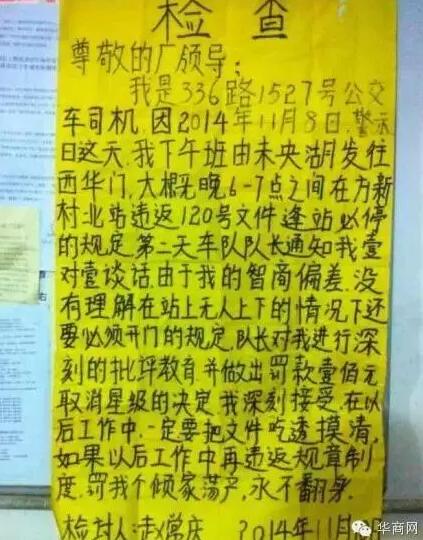 检 查
尊敬的广领导：
我是336路1527号公交
车司机，因2014年11月8日，警示
日这天，我下午班由未央湖发往
西华门，大概晚6-7点之间在方新
村北站违返120号文件逢站必停
的规定，第二天车队队长通知我壹
对壹谈话，由于我的智商偏差，没
有理解在站上无人上下的情况下还
要必须开门的规定，队长对我进行深
刻的批评教育并做出罚款壹佰元
取消星级的决定，我深刻接受，在以
后工作中，一定要把文件吃透摸清，
如果以后工作中再违返规章制
度，罚我个倾家荡产，永不翻身。
检讨人：赵常庆 2014年11月 日
华商网